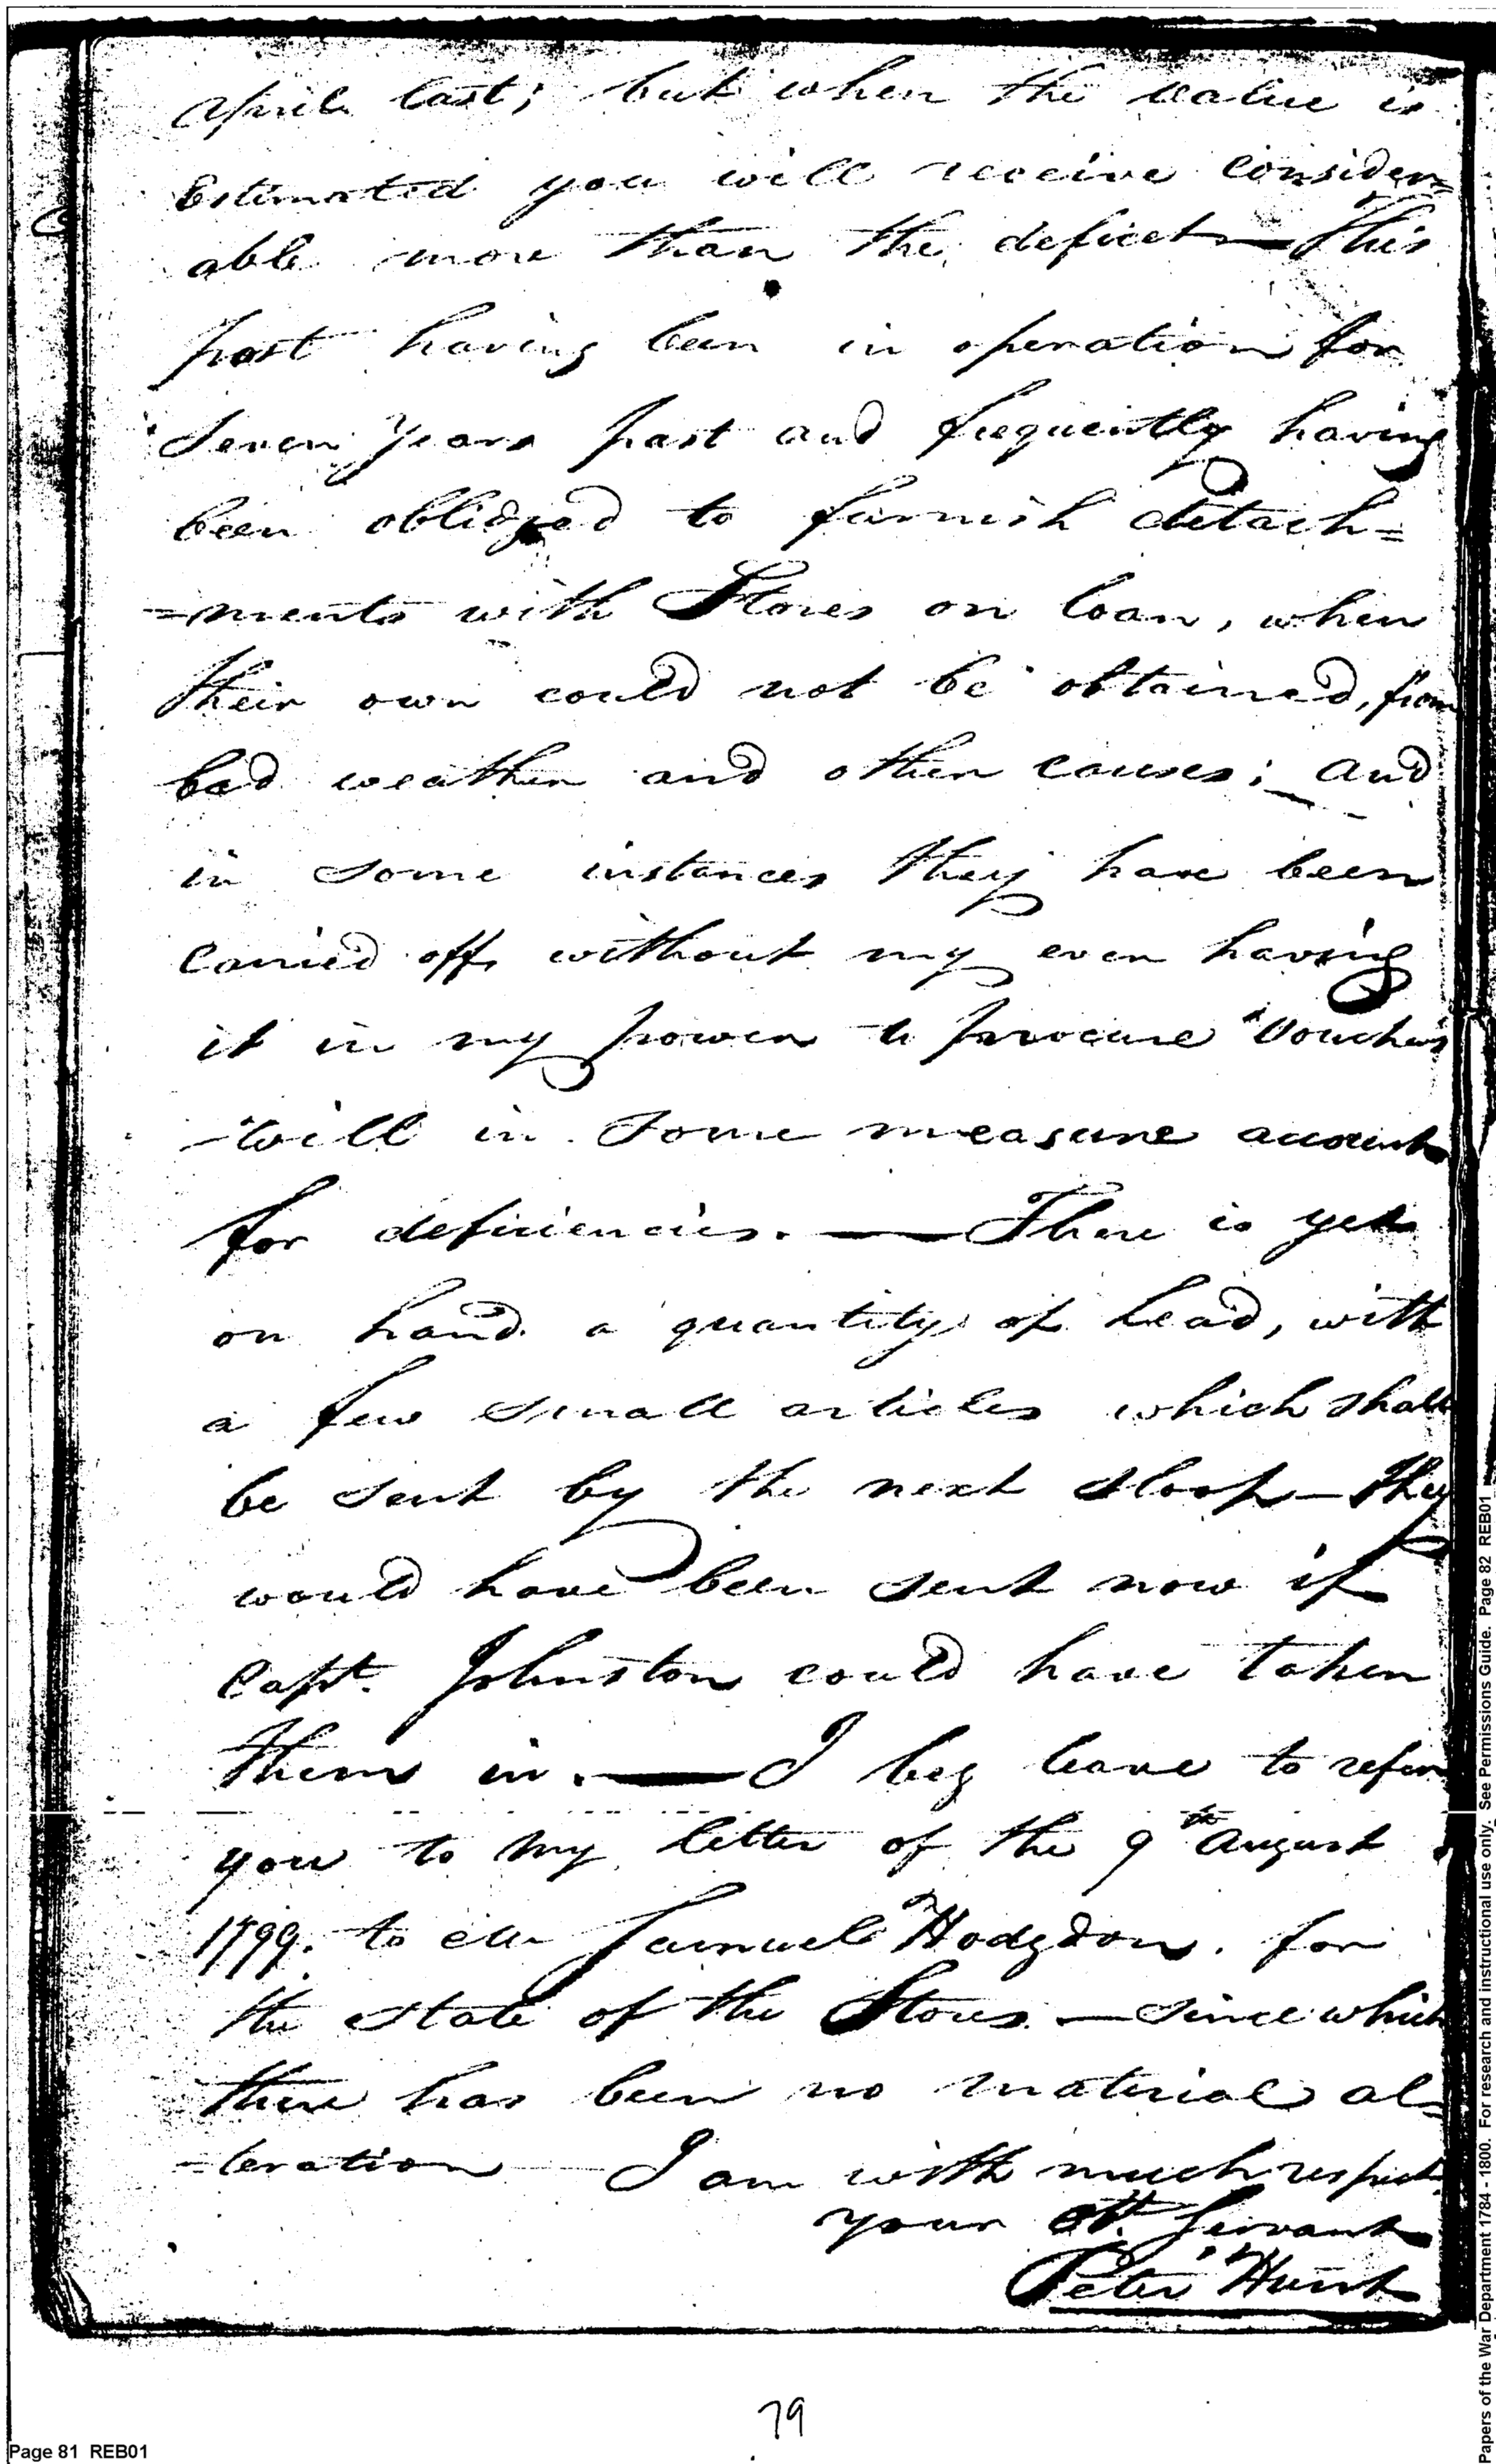 April last; but when the value is
Estimated you will receive consider=
able more than the deficit — This
post having been in operation for
Seven Years past and frequently having
been obliged to furnish detach=
=ments with Stores on loan, when
their own could not be obtained, from
bad weather and other causes; and
in some instances they have been
Carried off, without my even having
it in my power to procure Vouchers
will in some measure account
for deficiencies. — There is yet
on hand a quantity of Lead, with
a few small articles which shall
be sent by the next Sloop — they
would have been sent now if
Capt. Johnston could have taken
them in. — I beg leave to refer
you to my letter of the 9th August
1799. to Samuel Hodgdon. for
the state of the Stores. — since which
there has been no material al=
=teration — I am with much respect
your Obt. Servant
Peter Hunt
79
Page 81 REB01
Papers of the War Department 1784 - 1800. For research and instructional use only. See Permissions Guide. Page 82 REB01